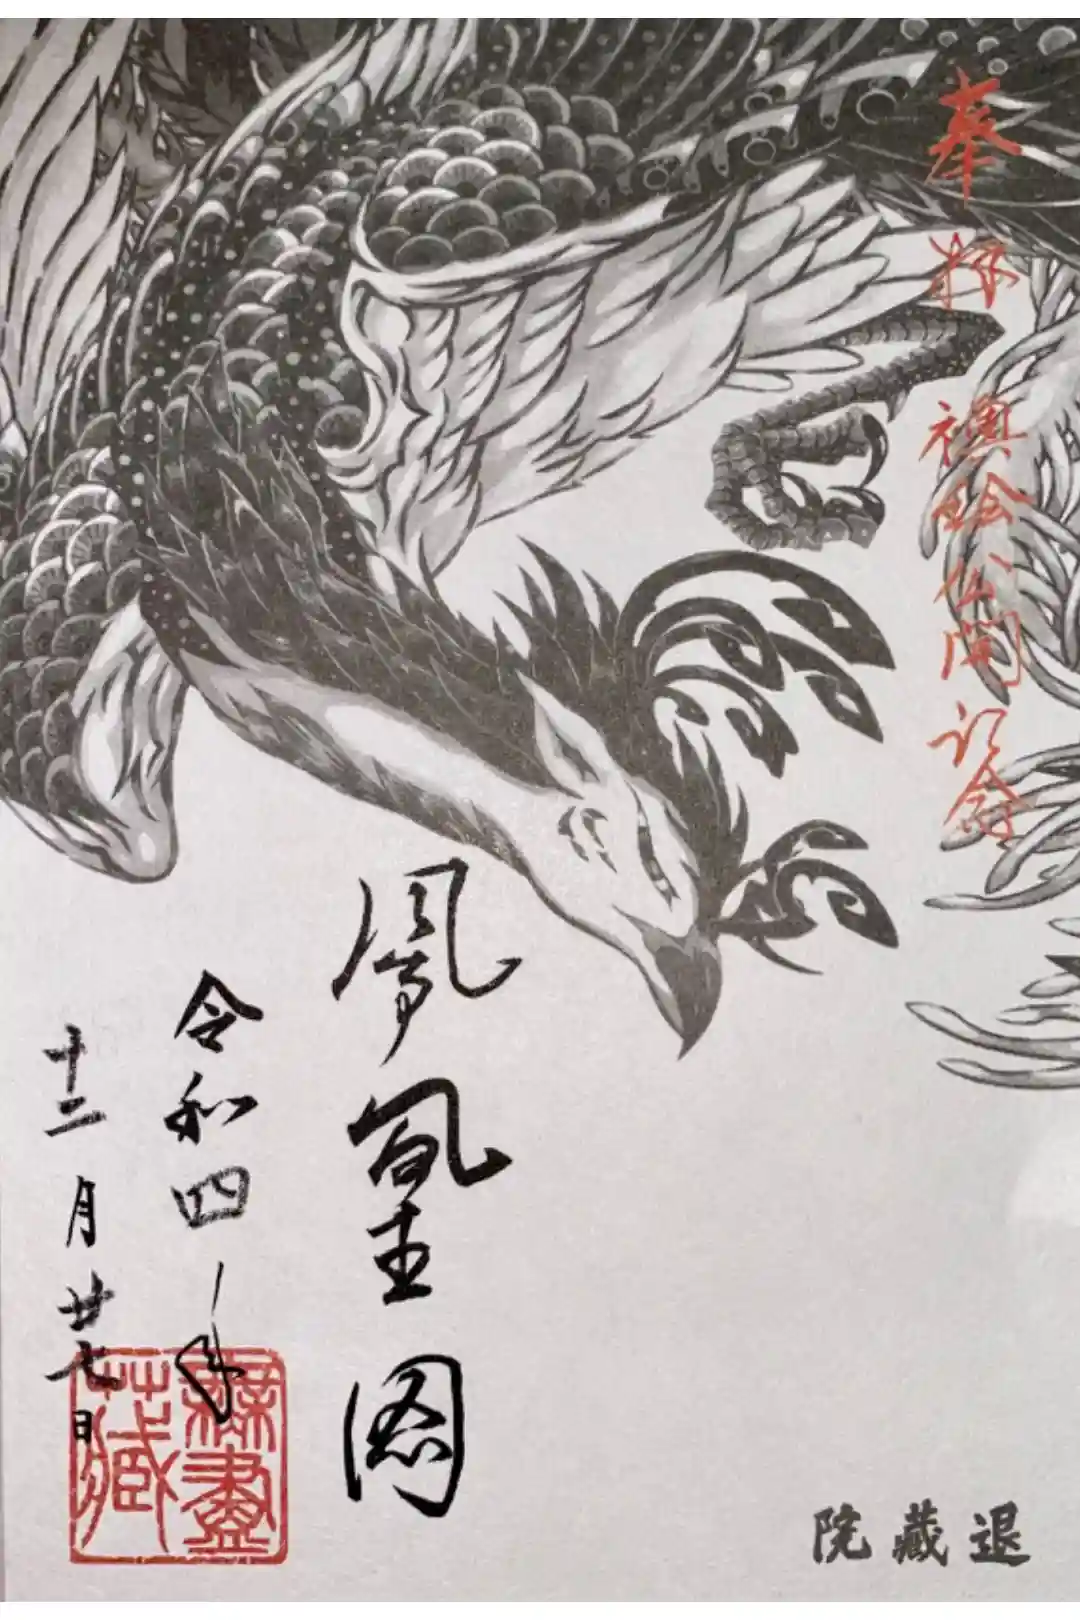 奉拝
襖絵公開記念
鳳凰図
令和四年
十二月廿七日
退藏院